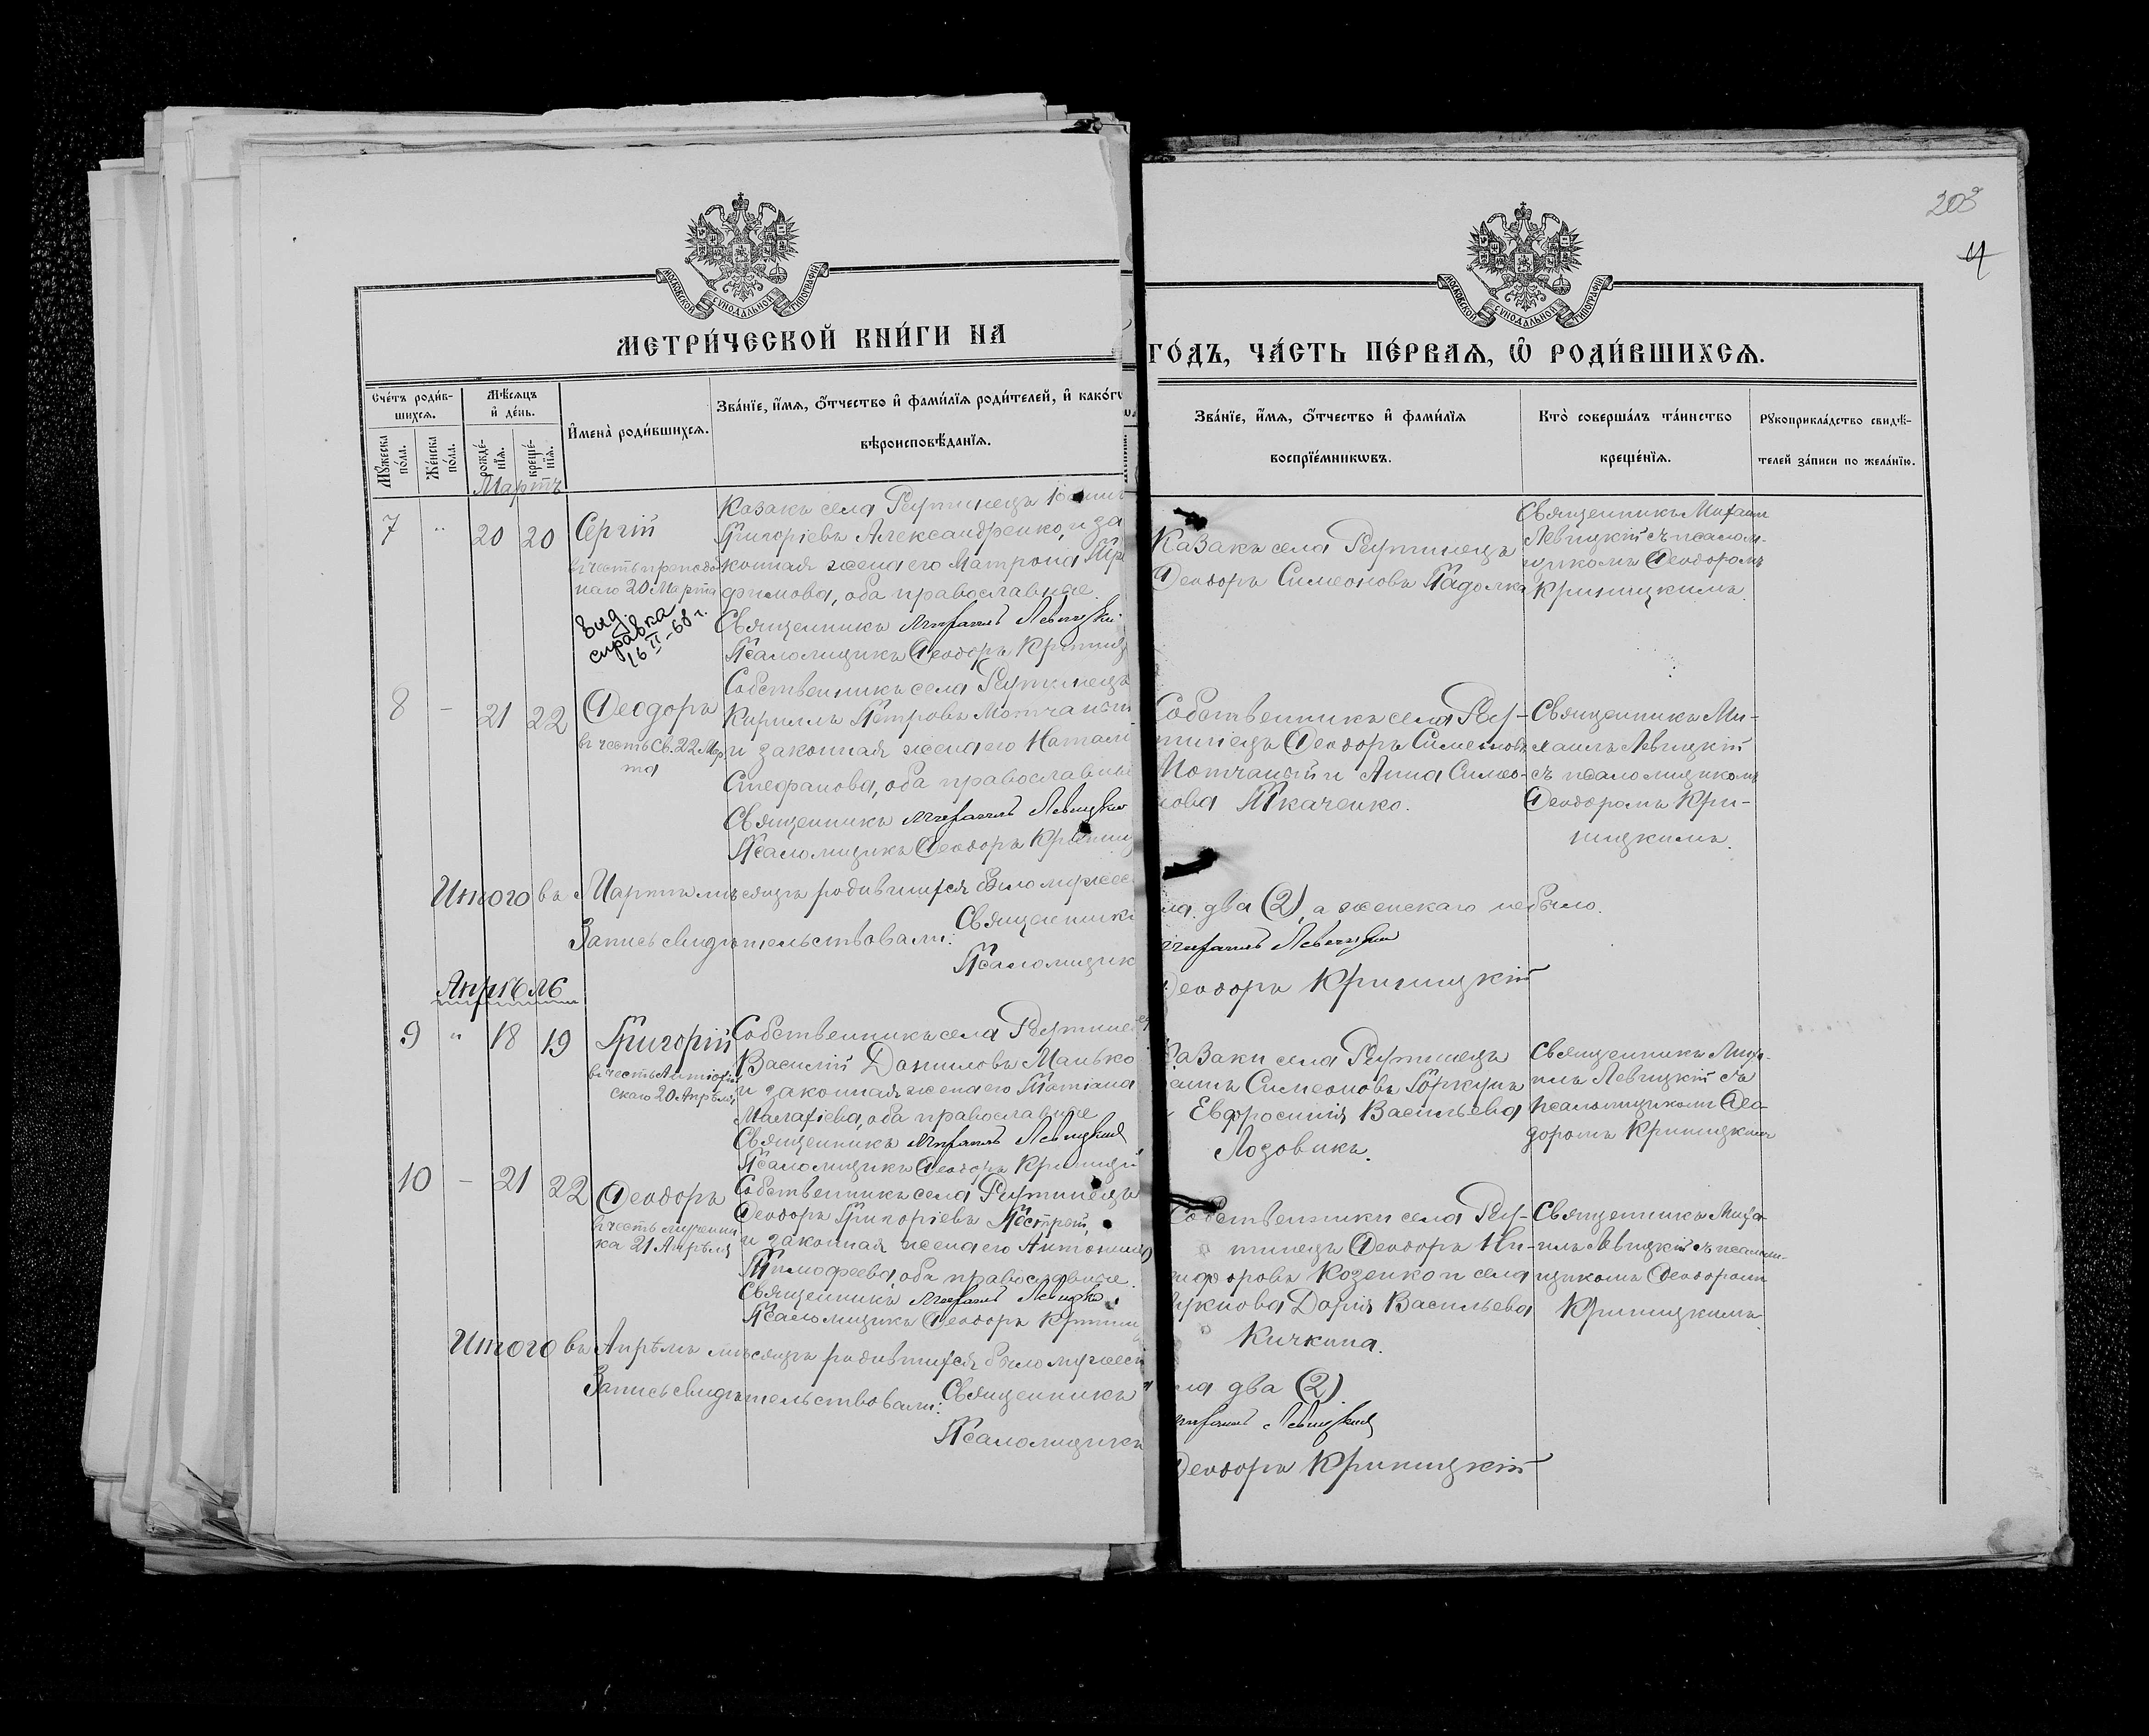 203
4
МОСКОВСКОЙ СѴНОДАЛЬНОЙ ТИПОГРАФІИ
МОСКОВСКОЙ СѴНОДАЛЬНОЙ ТИПОГРАФІИ
МЕТРИ́ЧЕСКОЙ КНИ́ГИ НА
ГО́ДЪ, ЧА́СТЬ ПЕ́РВАѦ, Ѿ РОДИ́ВШИХСѦ.
Сче́тъ роди́в-
шихсѧ.
Мѣ́сѧцъ
и҆ де́нь.
Мꙋ́жеска по́ла.
Же́нска по́ла.
рожде́-
нїѧ.
креще́-
нїѧ.
И҆мена̀ роди́вшихсѧ.
Зва́нїе, и҆́мѧ, ѻ҆́тчество и҆ фами́лїѧ роди́телей, и҆ како́гѡ
вѣроисповѣ́данїѧ.
Зва́нїе, и҆́мѧ, ѻ҆́тчество и҆ фами́лїѧ
воспрїе́мникѡвъ.
Кто̀ соверша́лъ та́инство
креще́нїѧ.
Рꙋкоприкла́дство свидѣ́-
телей за́писи по жела́нїю.
Мартъ
7 " 20 20 Сергій
въ честь преподо
наго 20 Марта
Вид.
справка
16 II-68 г.
Казакъ села Рутинецъ
Григоріевъ Александренко, и за
конная жена его Матрона
фимова, оба православные.
Священникъ Михаилъ Левицкій
Псаломщикъ Ѳеодоръ Криниц
Казакъ села Рутинецъ
Ѳеодоръ Симеоновъ Падолка
Священникъ Михаилъ
Левицкій съ псалом-
щикомъ Ѳеодоромъ
Криницкимъ.
8 - 21 22 Ѳеодоръ
въ честь Св. 22 Мар
та
Собственникъ села Рутинецъ
Кириллъ Петровъ Мотчаный
и законная жена его Натал
Стефанова, оба православны
Священникъ Михаилъ Левицкій
Псаломщикъ Ѳеодоръ Криниц
Собственникъ села Ру-
тинецъ Ѳеодоръ Симеоновъ
Мотчаный и Анна Симео-
нова Ткаченко.
Священникъ Ми-
хаилъ Левицкій
съ псаломщикомъ
Ѳеодоромъ Кри-
ницкимъ.
Итого въ Мартѣ мѣсяцѣ родившихся было мужес
ла два (2), а женскаго небыло.
Запись свидѣтельствовали: Священникъ
Михаилъ Левицкій
Псаломщик
Ѳеодоръ Криницкій
Апрѣль
9 " 18 19 Григорій
въ честь Антіохій
скаго 20 Апрѣля
Собственникъ села Рутине
Василій Даниловъ Манько
и законная жена его Татіана
Малахіева, оба православные
Священникъ Михаилъ Левицкій
Псаломщикъ Ѳеодоръ Криницкій
Казаки села Рутинецъ
Симеоновъ Коркунъ
и Евфросинія Васильева
Лозовикъ.
Священникъ Миха-
илъ Левицкій съ
псаломщикомъ Ѳео-
доромъ Криницкимъ
10 - 21 22 Ѳеодоръ
въ честь мучени
ка 21 Апрѣля
Собственникъ села Рутинецъ
Ѳеодоръ Григоріевъ Пестрый,
и законная жена его Антонина
Тимофеева, оба православные.
Священникъ Михаилъ Левицкій
Псаломщикъ Ѳеодоръ Криниц
Собственники села Ру-
тинецъ Ѳеодоръ Ни-
кифоровъ Козенко и села
Дарія Васильева
Кичкина.
Священникъ Миха-
илъ Левицкій съ псалом-
щикомъ Ѳеодоромъ
Криницкимъ.
Итого въ Апрѣлѣ мѣсяцѣ родившихся было мужеск
ла два (2).
Запись свидѣтельствовали: Священникъ
Михаилъ Левицкій
Псаломщикъ
Ѳеодоръ Криницкій